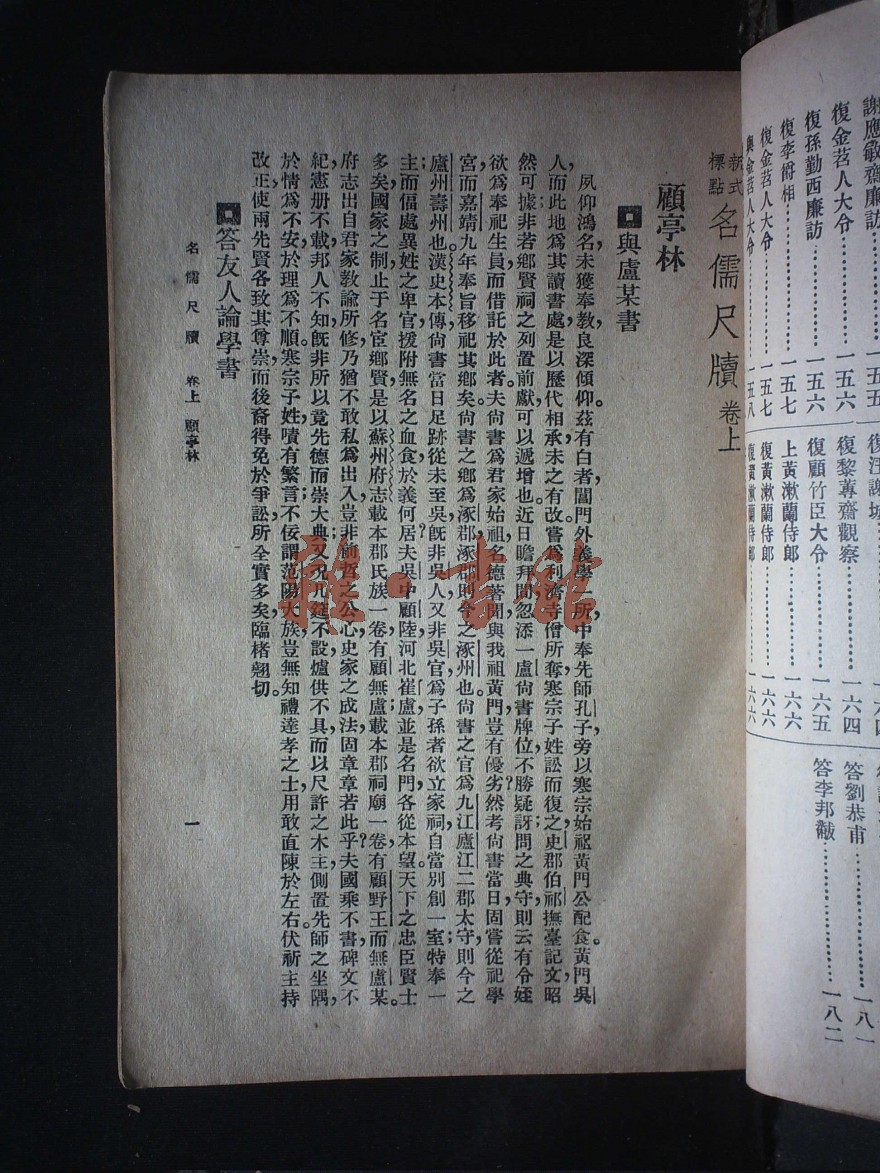 謝應敏齋廉訪⋯⋯一五五
復金苕人大令⋯⋯一五六
復孫勤西廉訪⋯⋯一五六
復李爵相⋯⋯一五七
復金苕人大令⋯⋯一五七
與金苕人大令⋯⋯一五八
復汪謝城
復黎蓴齋觀察⋯⋯一六四
復顧竹臣大令⋯⋯一六五
上黃漱蘭侍郎⋯⋯一六六
復黃漱蘭侍郎⋯⋯一六六
復黃漱蘭侍郎⋯⋯一六六
一八一
答劉恭甫⋯⋯一八一
答李邦黻⋯⋯一八二
新式標點 名儒尺牘 卷上
顧亭林
與盧某書
夙仰鴻名,未獲奉教,良深傾仰。茲有白者:閶門外義學一所,中奉先師孔子,旁以寒宗始祖黃門公配食。黃門吳
人,而此地爲其讀書處,是以歷代相承,未之有改。嘗爲利濟寺僧所奪,寒宗子姓訟而復之,史郡伯祁撫臺記文昭
然可據,非若鄉賢祠之列置前獻,可以遞增也。近日瞻拜間,忽添一盧尚書牌位,不勝疑訝;問之典守,則云有令姪
欲爲奉祀生員,而借託於此者。夫尚書爲君家始祖,名德著聞,與我祖黃門豈有優劣?然考尚書當日,固嘗從祀學
宮,而嘉靖九年奉旨移祀其鄉矣。尚書之鄉爲涿郡,涿郡則今之涿州也。尚書之官爲九江廬江二郡太守,則今之
廬州壽州也。漢史本傳,尚書當日足跡從未至吳,旣非吳人,又非吳官。爲子孫者,欲立家祠,自當別創一室,特奉一
主;而偪處異姓之卑官,援附無名之血食,於義何居?夫吳中顧陸,河北崔盧,並是名門,各從本望。天下之忠臣賢士
多矣,國家之制,止于名宦鄉賢,是以蘇州府志載本郡氏族一卷,有顧無盧,載本郡祠廟一卷,有顧野王而無盧某。
府志出自君家教諭所修,乃猶不敢私爲出入,豈非前哲之公心,史家之成法,固章章若此乎?夫國乘不書,碑文不
紀,憲册不載,邦人不知,旣非所以竟先德而崇大典,又況几筵不設,爐供不具,而以尺許之木主,側置先師之坐隅,
於情爲不安,於理爲不順。寒宗子姓,嘖有繁言;不佞謂范陽大族,豈無知禮達孝之士,用敢直陳於左右。伏祈主持
改正,使兩先賢各致其尊崇,而後裔得免於爭訟,所全實多矣。臨楮翹切。
答友人論學書
名儒尺牘 卷上 顧亭林
一
雜·書館